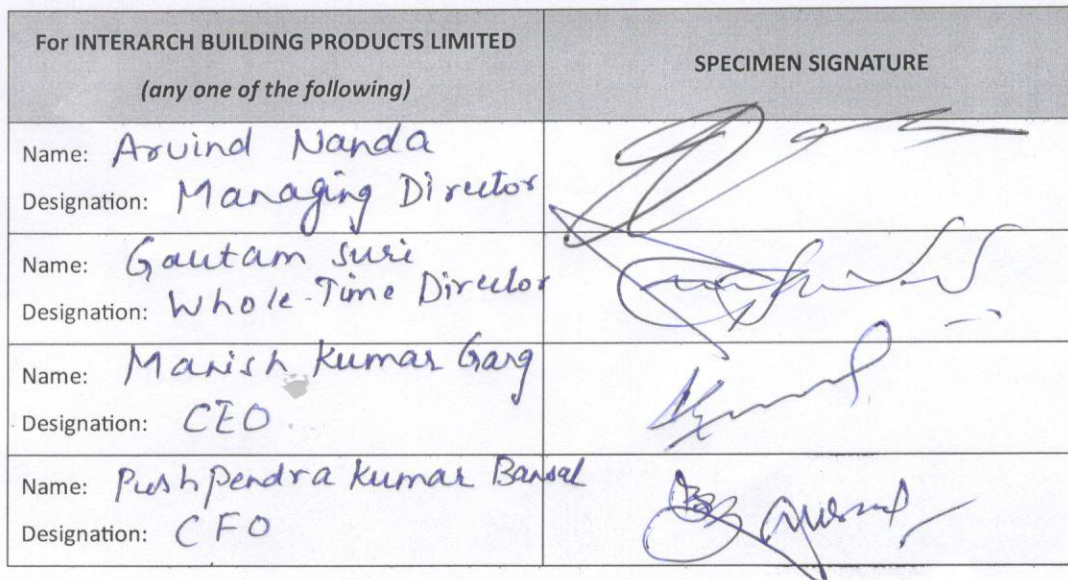 For INTERARCH BUILDING PRODUCTS LIMITED
(any one of the following)
SPECIMEN SIGNATURE
Name: Arvind Nanda
Designation: Managing Director
Name: Gautam Suri
Designation: Whole-Time Director
Name: Manish Kumar Garg
Designation: CEO
Name: Pushpendra Kumar Bansal
Designation: CFO